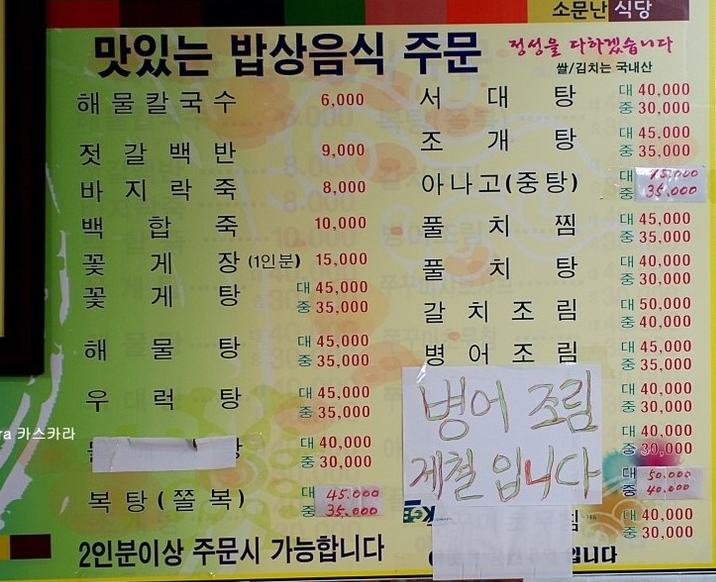 소문난 식당
맛있는 밥상음식 주문
정성을 다하겠습니다
쌀/김치는 국내산
해물칼국수 6,000
젓갈백반 9,000
바지락죽 8,000
백합죽 10,000
꽃게장 (1인분) 15,000
꽃게탕 대 45,000
중 35,000
해물탕 대 45,000
중 35,000
우럭탕 대 45,000
중 35,000
탕 대 40,000
중 30,000
복탕(쫄복) 대 45.000
중 35.000
2인분이상 주문시 가능합니다
서대탕 대 40,000
중 30,000
조개탕 대 45,000
중 35,000
아나고(중탕) 대 45.000
중 35.000
풀치찜 대 45,000
중 35,000
풀치탕 대 40,000
중 30,000
갈치조림 대 50,000
중 40,000
병어조림 대 45,000
중 35,000
병어 조림
계철 입니다
대 40,000
중 30,000
대 40,000
중 30,000
대 50.000
중 40.000
대 40,000
중 30,000
입니다
ra 카스카라